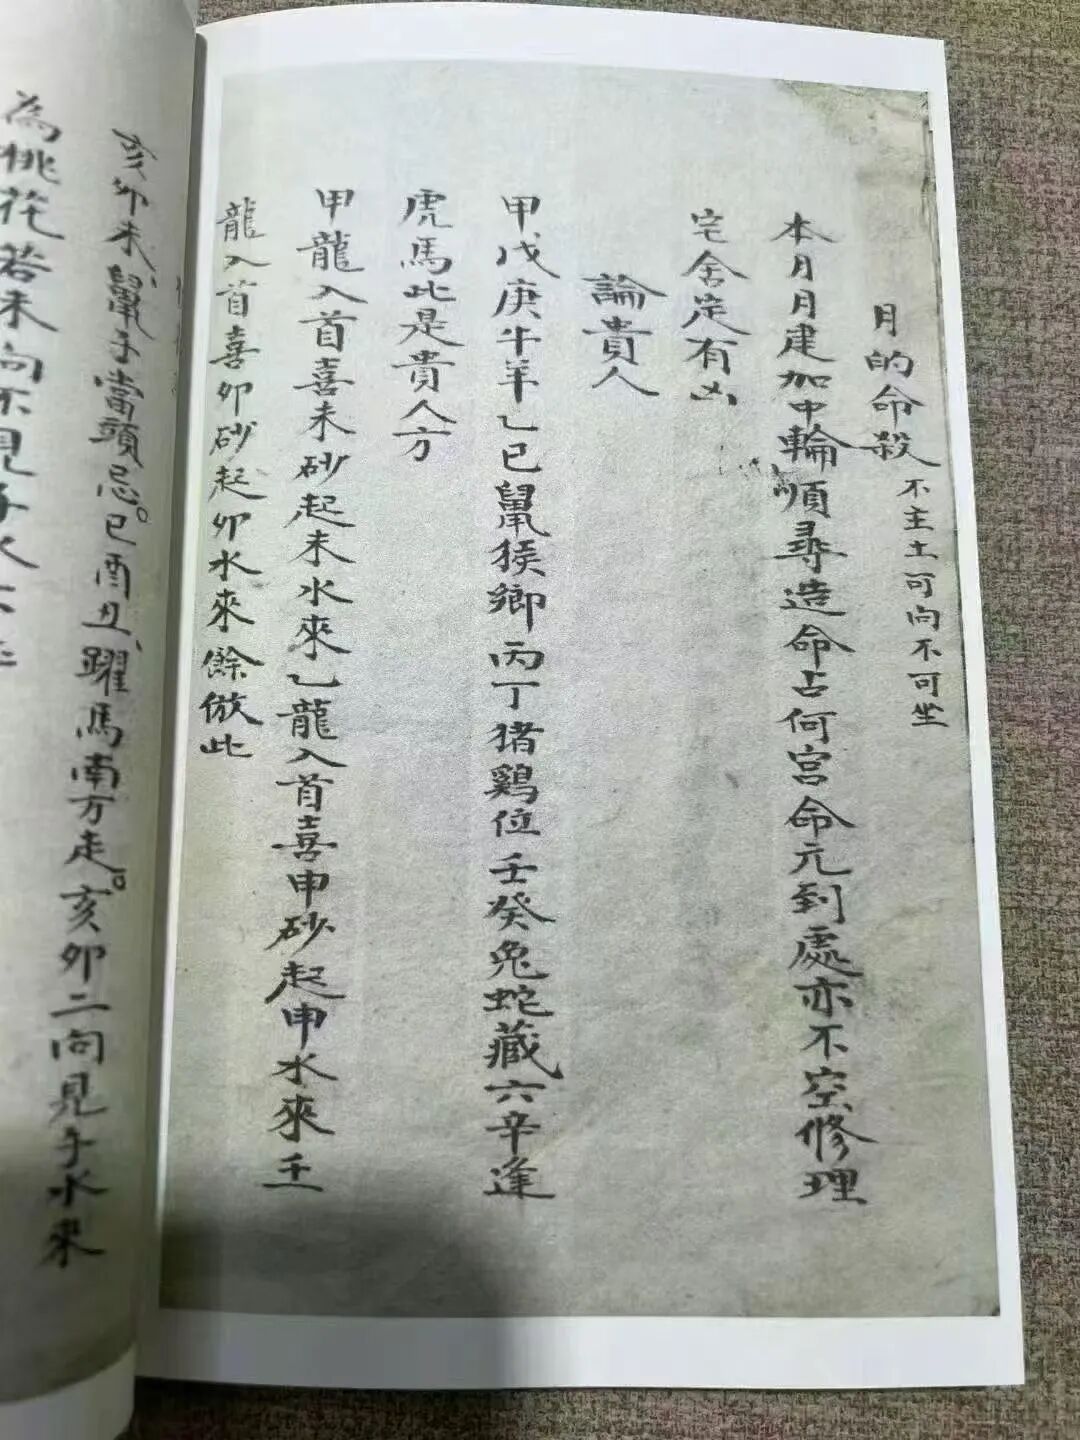 月的命殺 不主土可向不可坐
本月月建加中輪順尋造命占何宮命元到處亦不空修理
宅舍定有凶
論貴人
甲戊庚牛羊乙已鼠猴鄉丙丁猪鷄位壬癸兔蛇藏六辛逢
虎馬此是貴人方
甲龍入首喜未砂起未水來乙龍入首喜申砂起申水來壬
龍入首喜卯砂起卯水來餘倣此
亥卯未鼠子當頭忌。巳酉丑躍馬南方走。亥卯二向見子水來
為桃花若未向不見子水